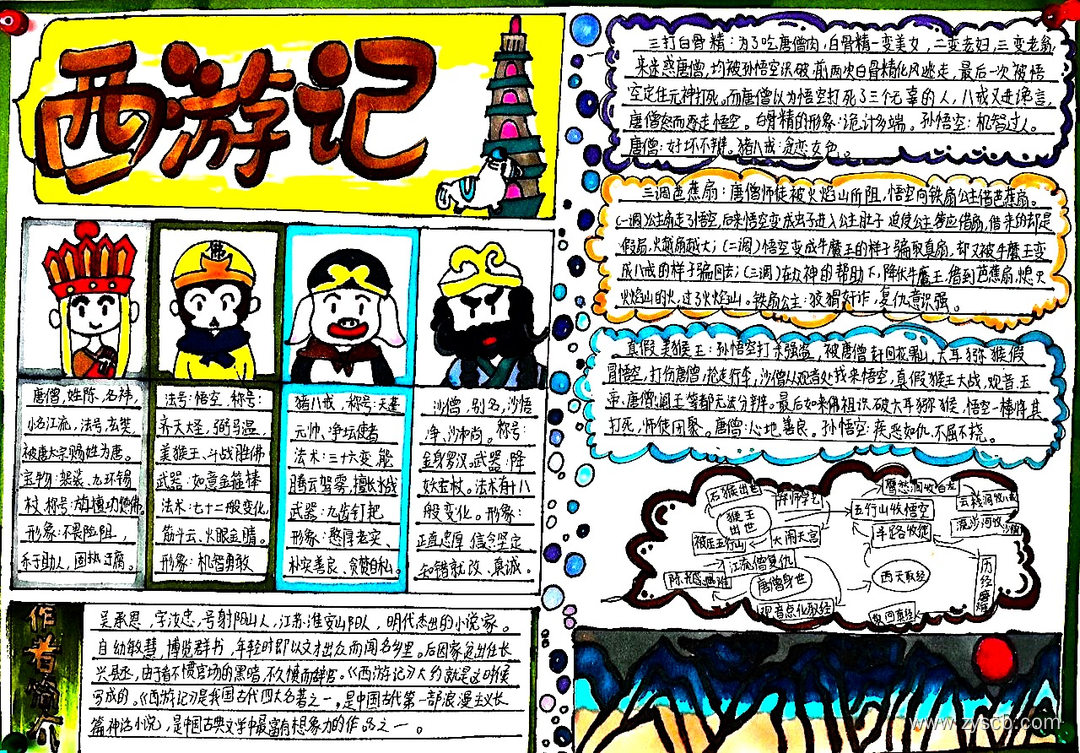 西游记
唐僧，姓陈，名祎，
小名江流，法号：玄奘，
被唐太宗赐姓为唐。
宝物：袈裟、九环锡
杖 称号：旃檀功德佛
形象：不畏险阻，
乐于助人，固执迂腐。
法号：悟空，称号：
齐天大圣，弼马温，
美猴王、斗战胜佛
武器：如意金箍棒
法术：七十二般变化，
筋斗云、火眼金睛。
形象：机智勇敢
猪八戒，称号：天蓬
元帅、净坛使者
法术：三十六变，能
腾云驾雾，擅长水战
武器：九齿钉耙
形象：憨厚老实、
朴实善良、贪赞自私。
沙僧，别名，沙悟
净、沙和尚。称号：
金身罗汉。武器：降
妖宝杖。法术有十八
般变化。形象：
正直忠厚 信念坚定
知错就改、真诚。
作者简介
吴承恩，字汝忠，号射阳山人，江苏淮安山阳人，明代杰出的小说家。
自幼敏慧，博览群书，年轻时即以文才出众而闻名乡里。后因家贫出任长
兴县丞，由于看不惯官场的黑暗，不久愤而辞官。《西游记》大约就是这时候
写成的。《西游记》是我国古代四大名著之一，是中国古代第一部浪漫主义长
篇神话小说，是中国古典文学中最富有想象力的作品之一。
三打白骨精：为了吃唐僧肉，白骨精一变美女，二变老妇，三变老翁，
来迷惑唐僧，均被孙悟空识破，前两次白骨精化风逃走，最后一次被悟
空定住元神打死。而唐僧以为悟空打死了三个无辜的人，八戒又进谗言，
唐僧怒而逐走悟空。白骨精的形象：诡计多端。孙悟空：机智过人。
唐僧：好坏不辨。猪八戒：贪恋女色。
三调芭蕉扇：唐僧师徒被火焰山所阻，悟空向铁扇公主借芭蕉扇。
(一调)公主扇走孙悟空，后来悟空变成虫子进入公主肚子 迫使公主答应借扇，借来的却是
假扇，火越扇越大；(二调)悟空变成牛魔王的样子骗取真扇，却又被牛魔王变
成八戒的样子骗回去；(三调)在众神的帮助下，降伏牛魔王，借到芭蕉扇，熄灭
火焰山的火，过了火焰山。铁扇公主：狡猾奸诈，复仇意识强。
真假美猴王：孙悟空打杀强盗，被唐僧赶回花果山，六耳猕猴假
冒悟空，打伤唐僧，抢走行李，沙僧从观音处找来悟空，真假猴王大战，观音、玉
帝、唐僧、阎王等都无法分辨。最后如来佛祖识破六耳猕猴，悟空一棒将其
打死，师徒团聚。唐僧：心地善良。孙悟空：疾恶如仇，不屈不挠。
石猴出世
拜师学艺
鹰愁涧收白龙
云栈洞收八戒
猴王
出世
五行山收悟空
流沙河收沙僧
被压五行山
大闹天宫
半路收徒
江流僧复仇
唐僧身世
西天取经
观音点化取经
历经磨难
取回真经
www.zyscb.com